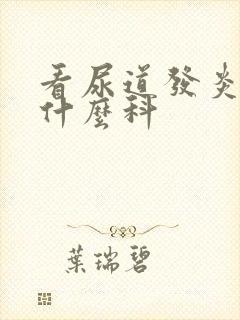 看尿道發炎
什麼科
葉瑞碧